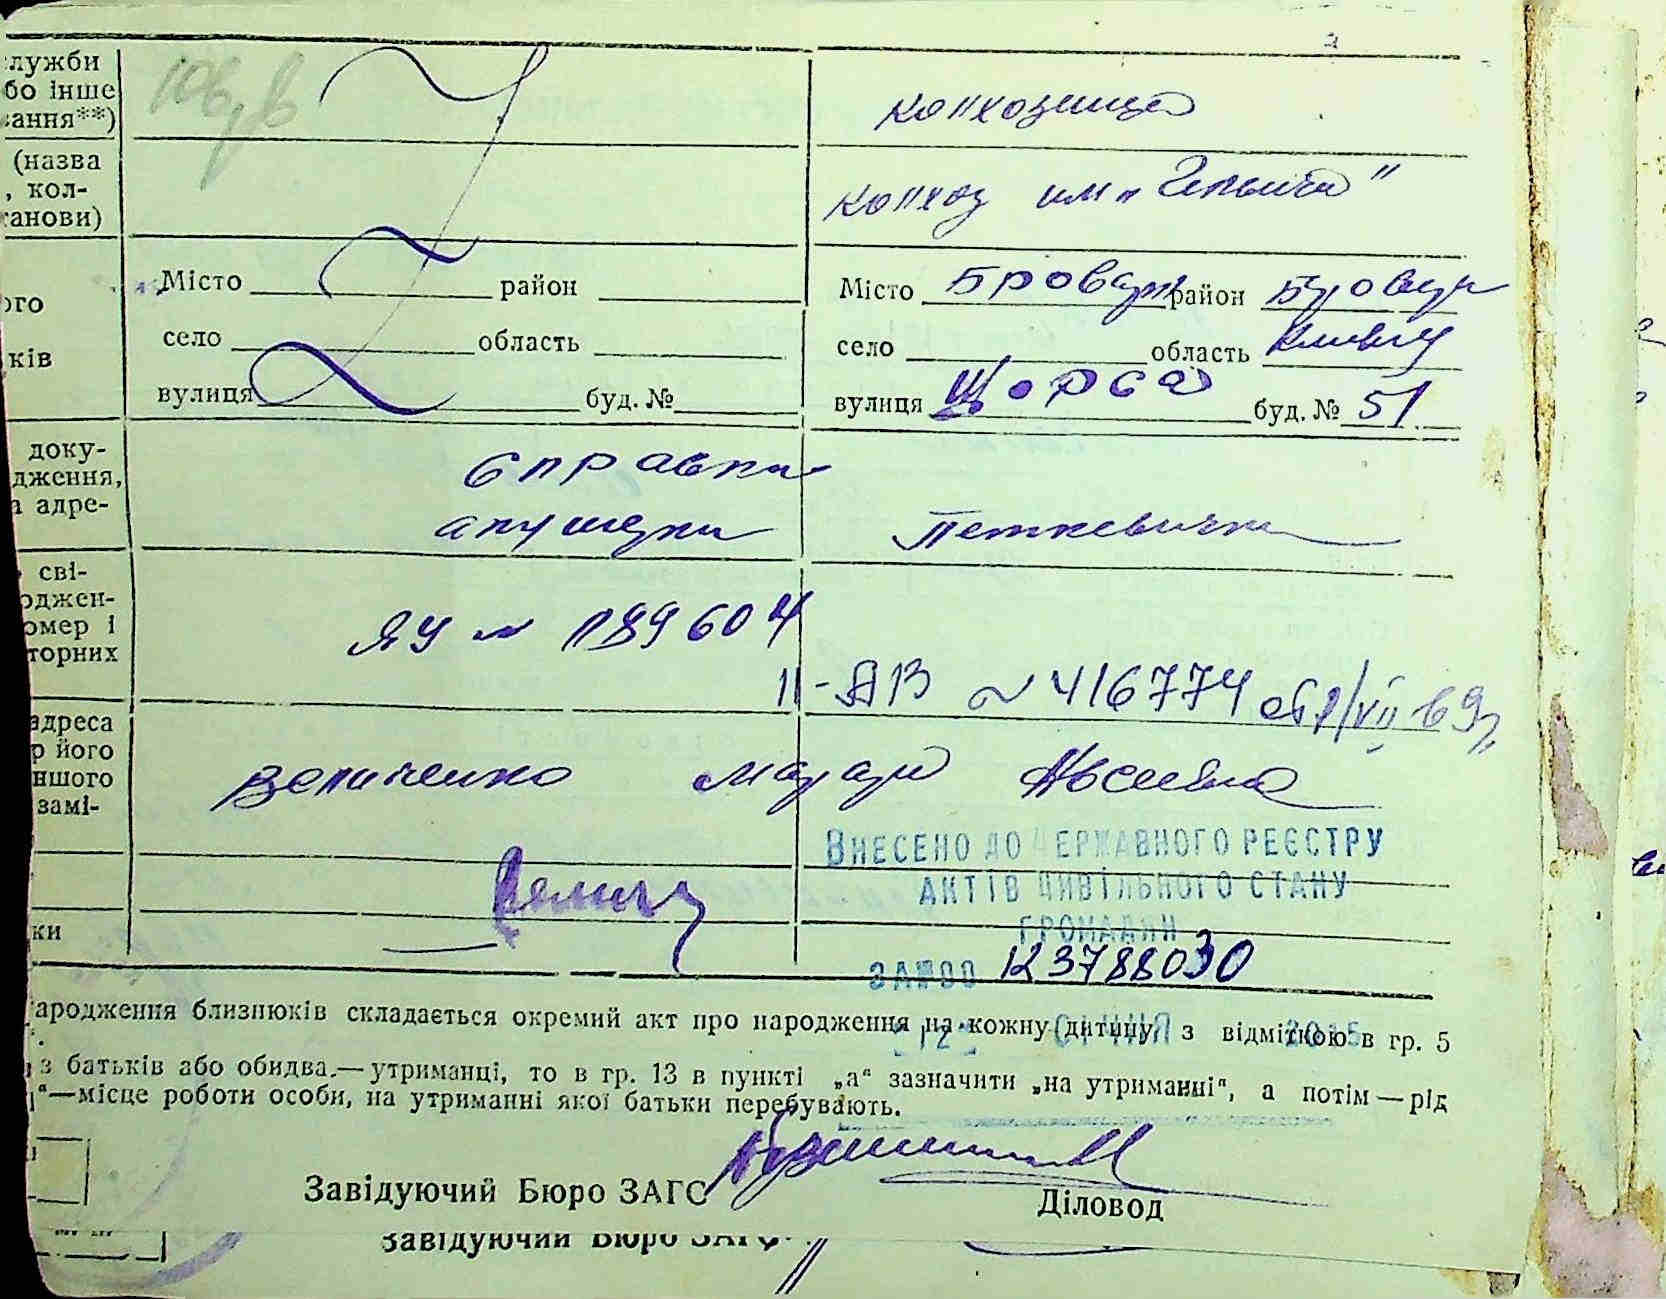 служби
бо інше
вання**)
колхозница
(назва
, кол-
танови)
колхоз им „Ильича"
Місто район
село область
вулиця буд. №
ого
ків
Місто Бровары район Бровар
село область Киевск
вулиця Щорса буд. № 51
доку-
дження,
а адре-
справка
акушерки Петкевички
сві-
оджен-
омер і
торних
ЯУ № 189604
II-ЯВ № 416774 от
адреса
р його
ншого
замі-
Величенко Мария Авсеевна
ВНЕСЕНО ДО ДЕРЖАВНОГО РЕЄСТРУ
АКТІВ ЦИВІЛЬНОГО СТАНУ
ГРОМАДЯН
ки
ЗА №00 123788030
12 СІЧНЯ 2015
ародження близнюків складається окремий акт про народження на кожну дитину з відміткою в гр. 5
з батьків або обидва.—утриманці, то в гр. 13 в пункті „а" зазначити „на утриманні", а потім—рід
"—місце роботи особи, на утриманні якої батьки перебувають.
Завідуючий Бюро ЗАГС
Діловод
Завідуючий Бюро ЗАГС